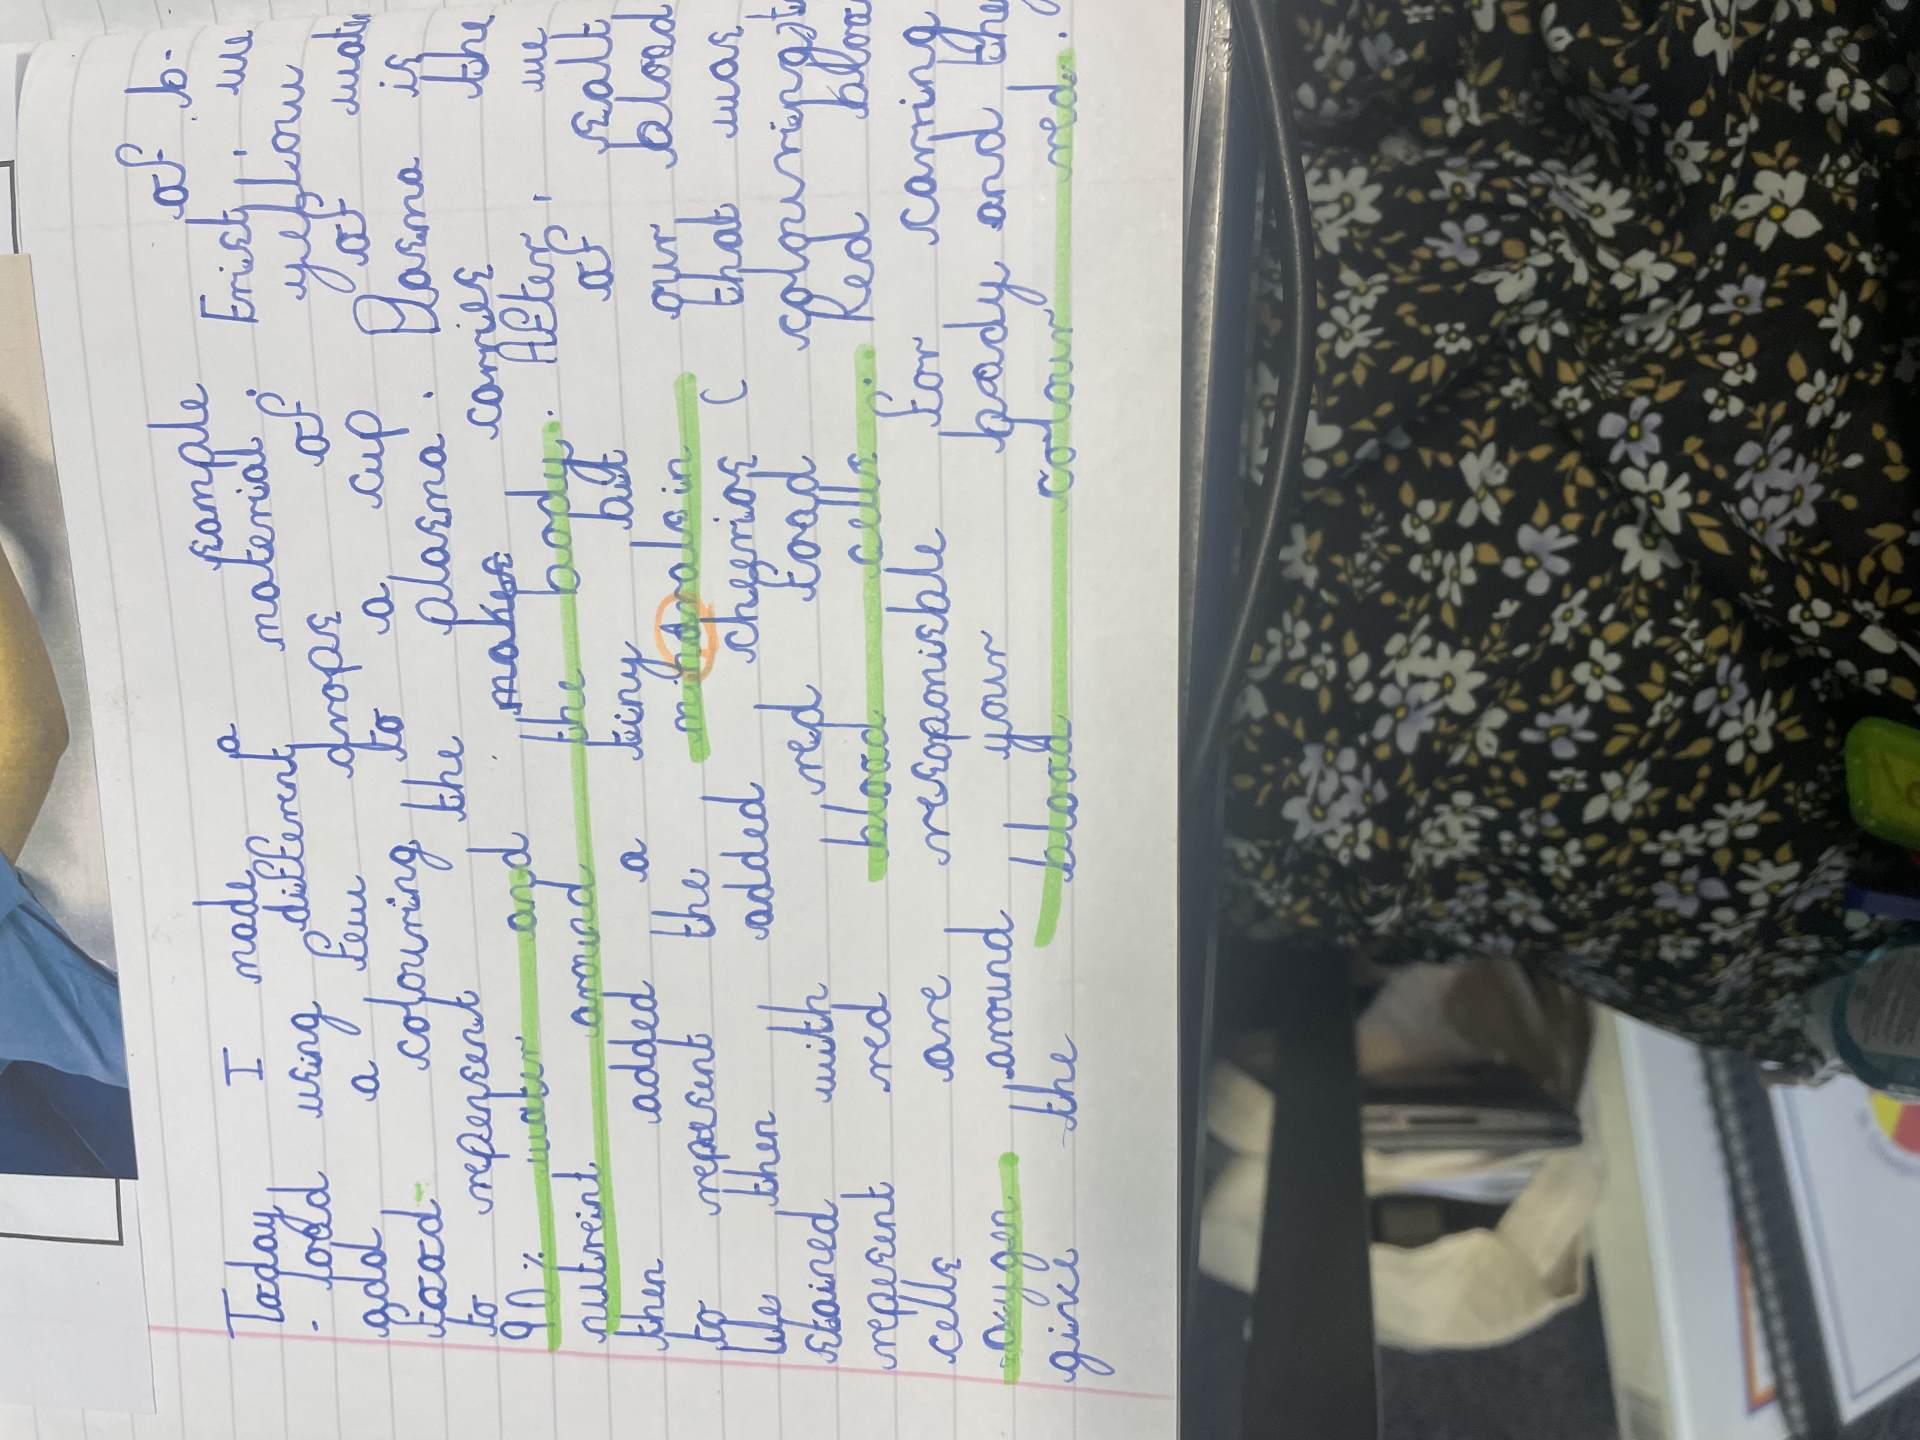 Today I made a sample of b.
. food using different material. Frist, we
add a few drops of yellow
food colouring to a cup of wate
to represent the plasma. Plasma is
90% water and makes carries the
nutreint around the body. After, we
then added a tiny bit of salt
to represent the minarals in our blood
We then added cheerios ( that was
stained with red food colouringst
repesent red blood cells. Red bloo
cells are responisble for carring
oxygen around your body and the
gives the blood colour red.